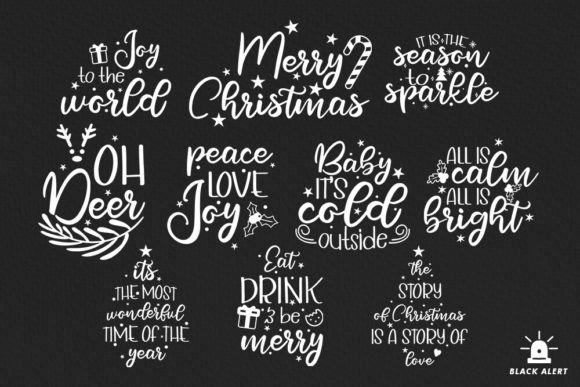 Joy
to the
world
Merry
Christmas
IT IS THE
season
to
sparkle
OH
Deer
peace
LOVE
Joy
Baby
IT'S
cold
outside
ALL IS
calm
ALL IS
bright
it's
THE MOST
wonderful
TIME OF THE
year
Eat
DRINK
& be
merry
the
STORY
of Christmas
IS A STORY OF
love
BLACK ALERT